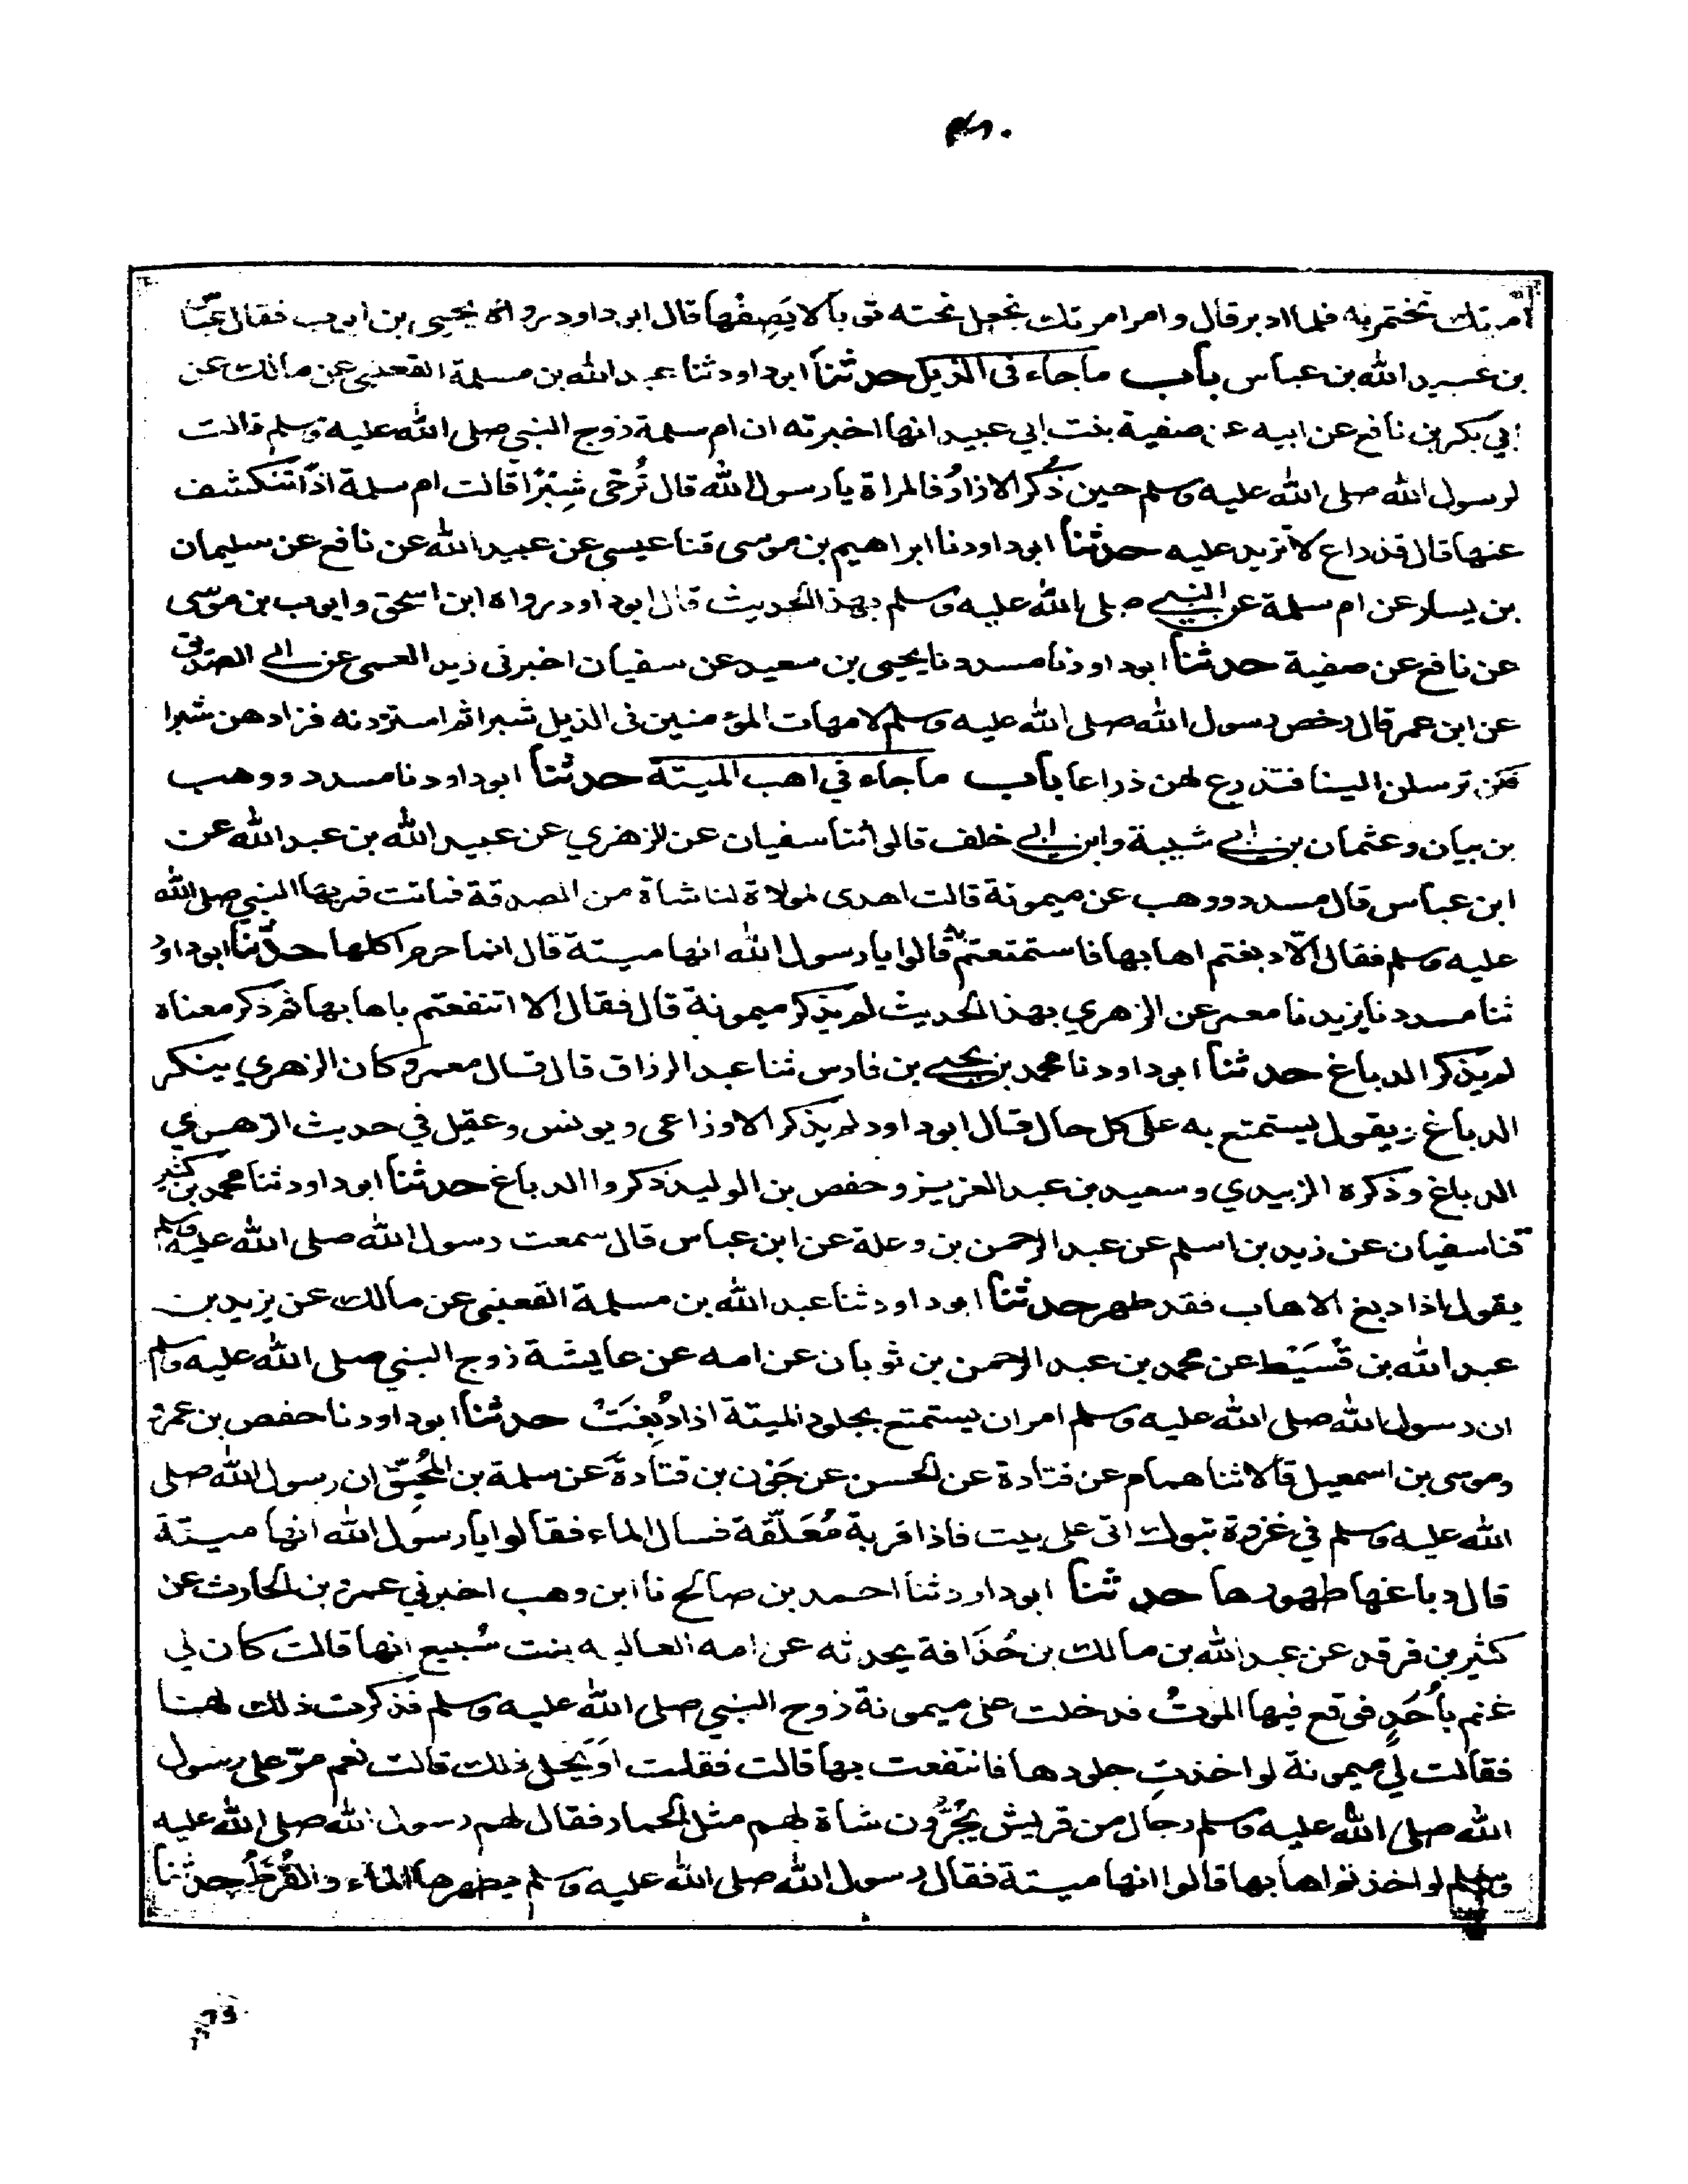 امرتك تختمر به فلما ادبر قال وامر امرتك تجعل تحته ثوبا لا يَصِفُها قال ابو داود رواه يحيى بن ايوب فقال عبّا
بن عبيد الله بن عباس باب ما جاء فى الذيل حدثنا ابو داود ثنا عبد الله بن مسلمة القعنبى عن مالك عن
ابي بكر بن نافع عن ابيه عن صفية بنت ابي عبيد انها اخبرته ان ام سلمة زوج النبي صلى الله عليه وسلم قالت
لرسول الله صلى الله عليه وسلم حين ذُكر الازارُ فالمراة يا رسول الله قال تُرخى شِبْرًا قالت ام سلمة اذًا تنكشف
عنها قال فذراع لا تزيد عليه حدثنا ابو داود نا ابراهيم بن موسى قنا عيسى عن عبيد الله عن نافع عن سليمان
بن يسار عن ام سلمة عن النبي صلى الله عليه وسلم بهذا الحديث قال ابو داود رواه ابن اسحق وايوب بن موسى
عن نافع عن صفية حدثنا ابو داود نا مسدد نا يحيى بن سعيد عن سفيان اخبرنى زيد العمى عن ابي الصديق
عن ابن عمر قال رخص رسول الله صلى الله عليه وسلم لامهات المؤمنين فى الذيل شبرا ثم استزدنه فزادهن شبرا
فكن ترسلن الينا فتذرع لهن ذراعا باب ما جاء في اهب الميتة حدثنا ابو داود نا مسدد ووهب
بن بيان وعثمان بن ابي شيبة وابن ابي خلف قالوا ثنا سفيان عن الزهري عن عبيد الله بن عبد الله عن
ابن عباس قال مسدد ووهب عن ميمونة قالت اهدى لمولاة لنا شاة من الصدقة فماتت فمر بها النبي صلى الله
عليه وسلم فقال الّا دبغتم اهابها فاستمتعتم به قالوا يا رسول الله انها ميتة قال انما حرم اكلها حدّثنا ابو داود
ثنا مسدد نا يزيد نا معمر عن الزهري بهذا الحديث لم يذكر ميمونة قال فقال الا انتفعتم باهابها ثم ذكر معناه
لم يذكر الدباغ حدثنا ابو داود نا محمد بن يحيى بن فارس ثنا عبد الرزاق قال قال معمر وكان الزهري ينكر
الدباغ ويقول يستمتع به على كل حال قال ابو داود لم يذكر الاوزاعى ويونس وعقيل في حديث الزهري
الدباغ وذكره الزبيدي وسعيد بن عبد العزيز وحفص بن الوليد ذكروا الدباغ حدثنا ابو داود ثنا محمد بن كثير
قنا سفيان عن زيد بن اسلم عن عبد الرحمن بن وعلة عن ابن عباس قال سمعت رسول الله صلى الله عليه وسلم
يقول اذا دبغ الاهاب فقد طهر حدثنا ابو داود ثنا عبد الله بن مسلمة القعنبى عن مالك عن يزيد بن
عبد الله بن قُسَيْط عن محمد بن عبد الرحمن بن ثوبان عن امه عن عايشة زوج النبي صلى الله عليه وسلم
ان رسول الله صلى الله عليه وسلم امر ان يستمتع بجلود الميتة اذا دُبِغَتْ حدثنا ابو داود نا حفص بن عمر
وموسى بن اسمعيل قالا ثنا همام عن قتادة عن الحسن عن جَوْن بن قتادةَ عن سلمة بن المُحَبِّق ان رسول الله صلى
الله عليه وسلم في غزوة تبوك اتى على بيت فاذا قربة مُعَلّقة فسال الماء فقالوا يا رسول الله انها ميتة
قال دباغها طهورها حدثنا ابو داود ثنا احمد بن صالح نا ابن وهب اخبرني عمرو بن الحارث عن
كثير بن فرقد عن عبد الله بن مالك بن حُذَافة يحدثه عن امه العاليه بنت سُبيع انها قالت كان لي
غنم بأُحَدٍ فوقع فيها الموتُ فدخلت على ميمونة زوج النبي صلى الله عليه وسلم فذكرت ذلك لها
فقالت لي ميمونة لو اخذتِ جلودها فانتفعت بها قالت فقلت اوَيَحِل ذلك قالت نعم مرّ على رسول
الله صلى الله عليه وسلم رجال من قريش يَجُرُّون شاة لهم مثل الحمار فقال لهم رسول الله صلى الله عليه
وسلم لو اخذتم اهابها قالوا انها ميتة فقال رسول الله صلى الله عليه وسلم يطهرها الماء والقُرَظُ حدثنا